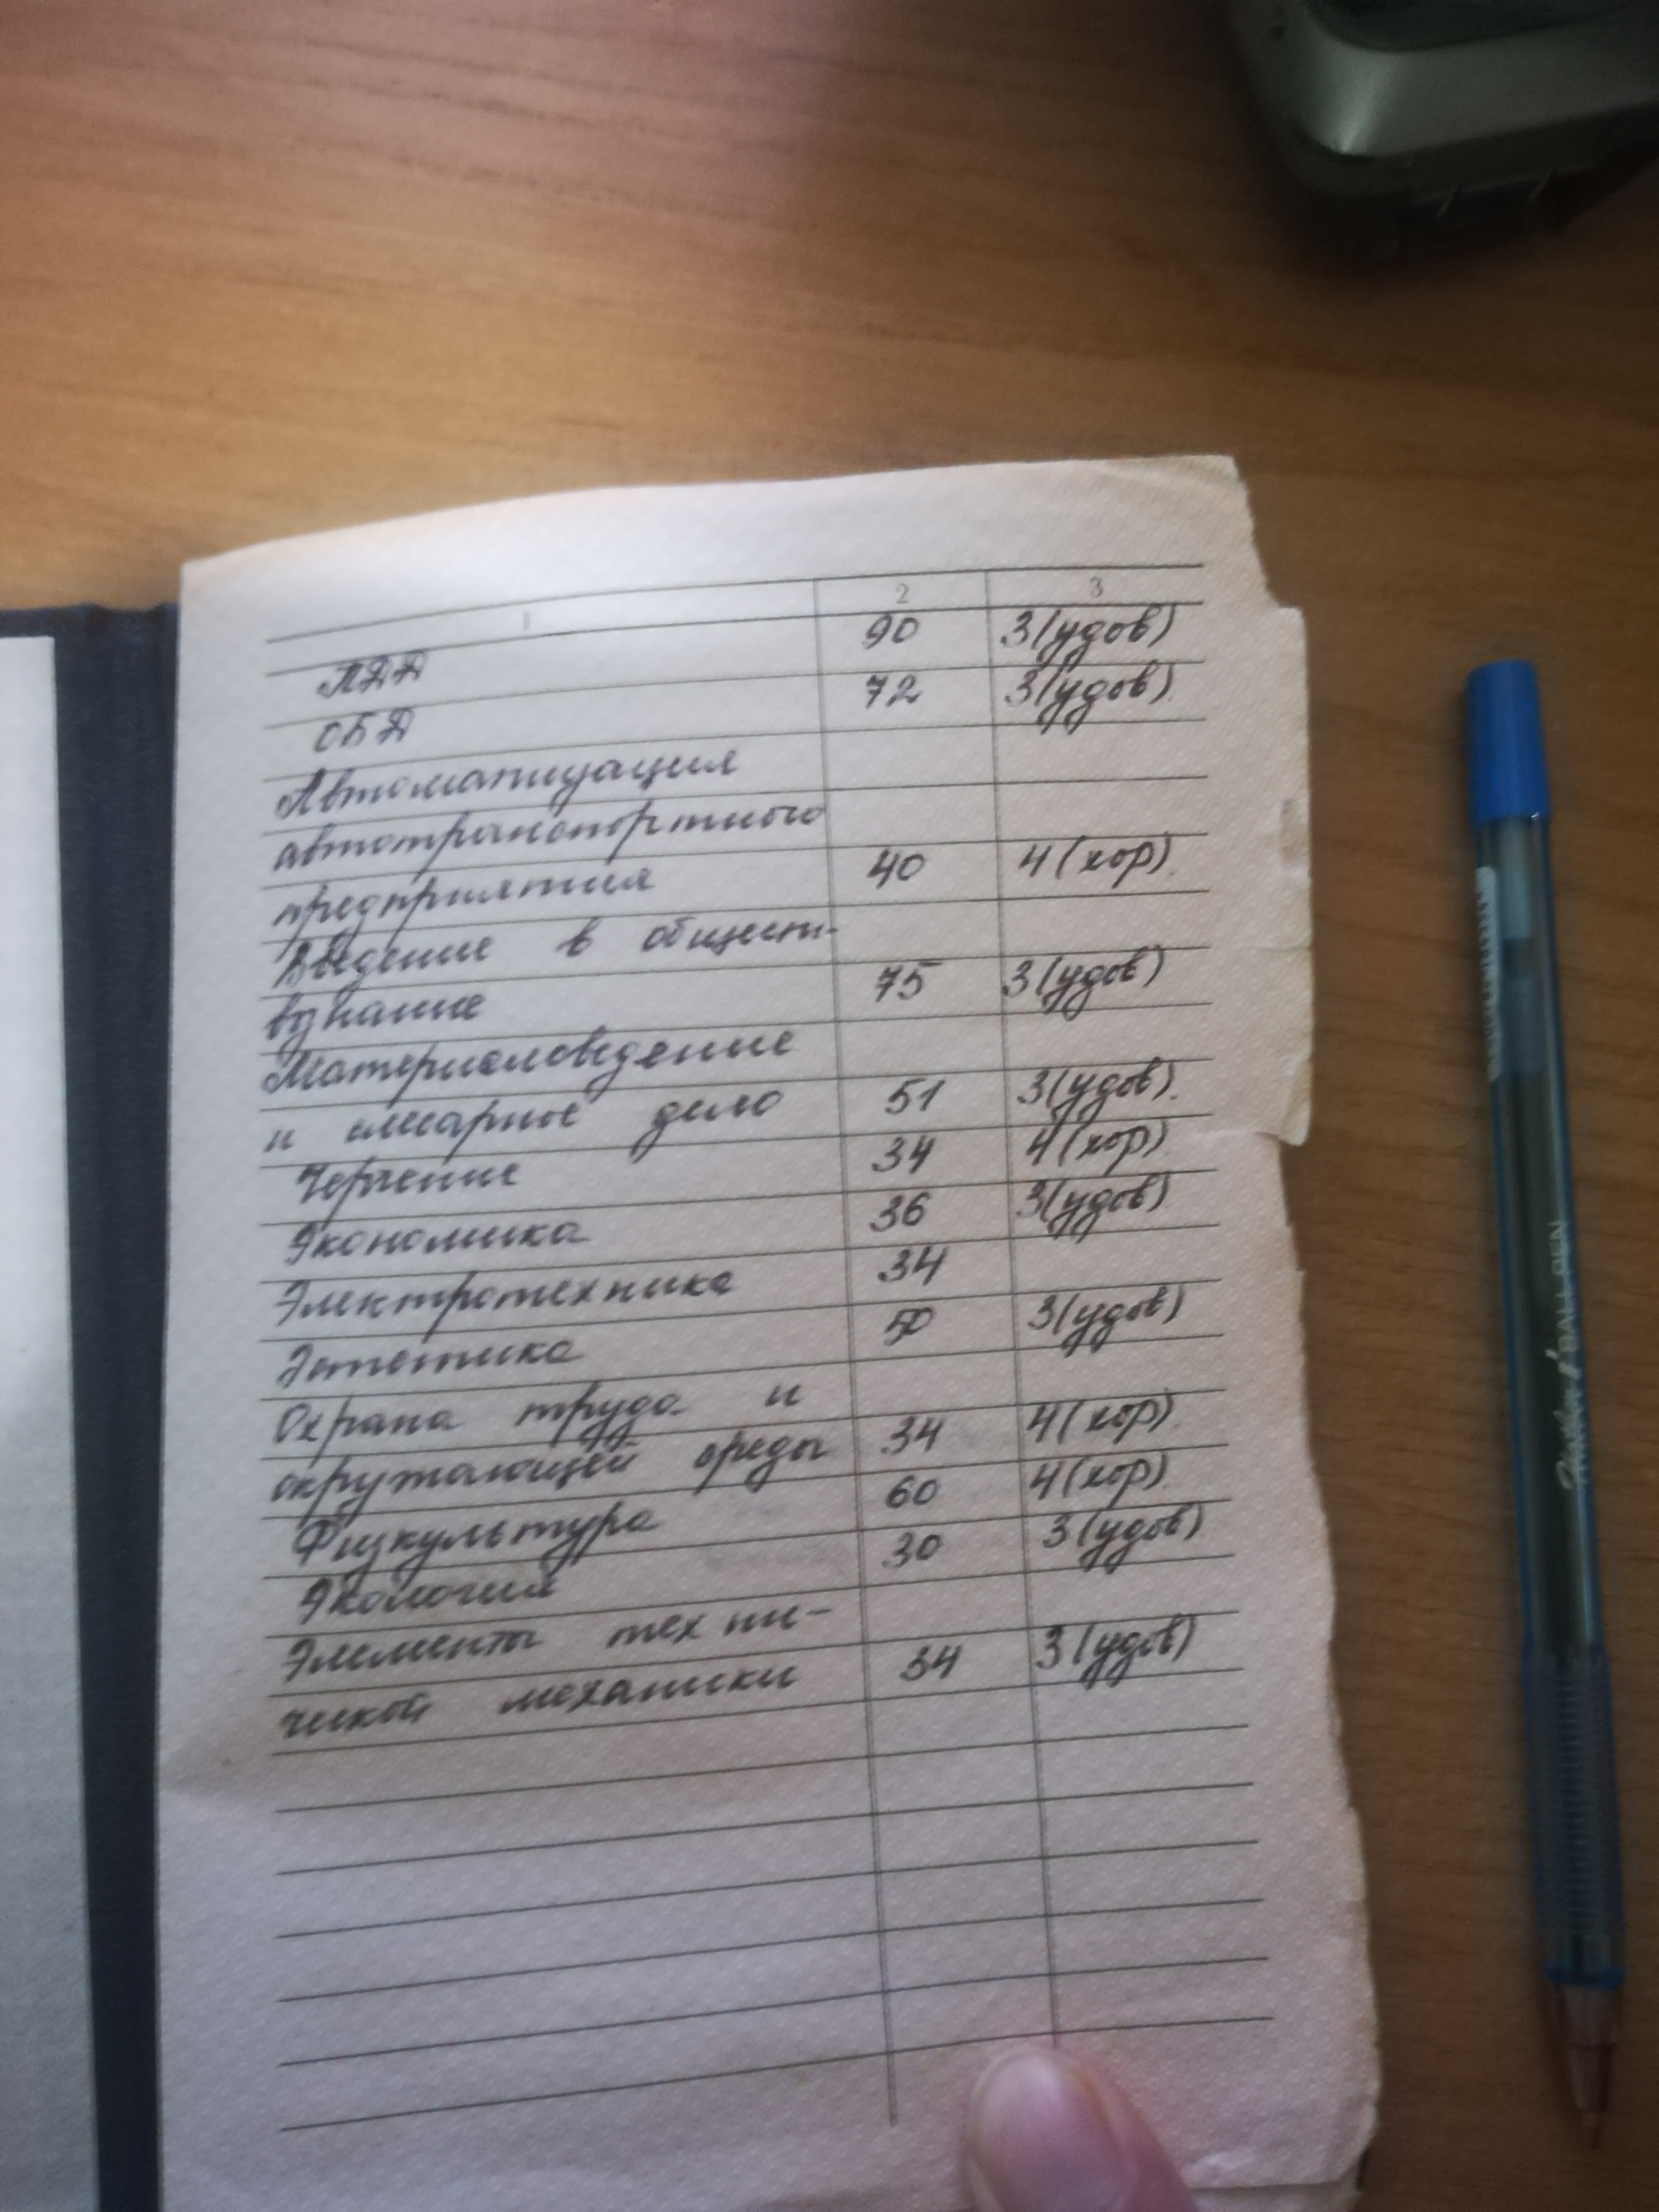 1 2 3
ПДД 90 3(удов)
ОБД 72 3(удов).
Автоматизация
автотранспортного
предприятия 40 4(хор).
Введение в общест-
вознание 75 3(удов)
Материаловедение
и слесарное дело 51 3(удов).
Черчение 34 4(хор).
Экономика 36 3(удов)
Электротехника 34
Эстетика 50 3(удов)
Охрана труда и
окружающей среды 34 4(хор).
Физкультура 60 4(хор).
Экология 30 3(удов)
Элементы техни-
ческой механики 34 3(удов)
BALLPEN